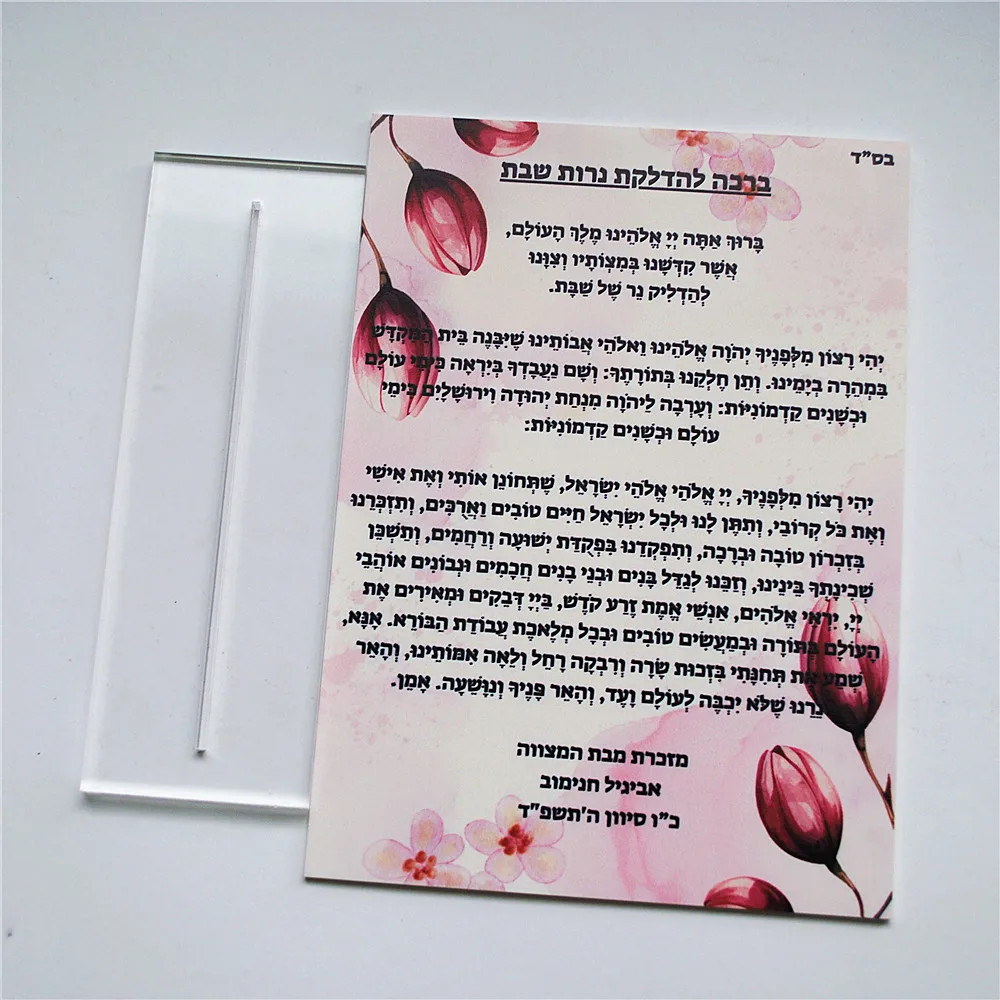 בס"ד
ברכה להדלקת נרות שבת
בָּרוּךְ אַתָּה יְיָ אֱלֹהֵינוּ מֶלֶךְ הָעוֹלָם,
אֲשֶׁר קִדְּשָׁנוּ בְּמִצְוֹתָיו וְצִוָּנוּ
לְהַדְלִיק נֵר שֶׁל שַׁבָּת.
יְהִי רָצוֹן מִלְּפָנֶיךָ יְהֹוָה אֱלֹהֵינוּ וֵאלֹהֵי אֲבוֹתֵינוּ שֶׁיִּבָּנֶה בֵּית הַמִּקְדָּשׁ
בִּמְהֵרָה בְיָמֵינוּ. וְתֵן חֶלְקֵנוּ בְּתוֹרָתֶךָ: וְשָׁם נַעֲבָדְךָ בְּיִרְאָה כִּימֵי עוֹלָם
וּכְשָׁנִים קַדְמוֹנִיּוֹת: וְעָרְבָה לַיהֹוָה מִנְחַת יְהוּדָה וִירוּשָׁלָיִם כִּימֵי
עוֹלָם וּכְשָׁנִים קַדְמוֹנִיּוֹת:
יְהִי רָצוֹן מִלְּפָנֶיךָ, יְיָ אֱלֹהַי אֱלֹהֵי יִשְׂרָאֵל, שֶׁתְּחוֹנֵן אוֹתִי וְאֶת אִישִׁי
וְאֶת כֹּל קְרוֹבַי, וְתִתֶּן לָנוּ וּלְכָל יִשְׂרָאֵל חַיִּים טוֹבִים וַאֲרֻכִּים, וְתִזְכְּרֵנוּ
בְּזִכְרוֹן טוֹבָה וּבְרָכָה, וְתִפְקְדֵנוּ בִּפְקֻדַּת יְשׁוּעָה וְרַחֲמִים, וְתַשְׁכֵּן
שְׁכִינָתְךָ בֵּינֵינוּ, וְזַכֵּנוּ לְגַדֵּל בָּנִים וּבְנֵי בָנִים חֲכָמִים וּנְבוֹנִים אוֹהֲבֵי
יְיָ, יִרְאֵי אֱלֹהִים, אַנְשֵׁי אֱמֶת זֶרַע קֹדֶשׁ, בַּיְיָ דְּבֵקִים וּמְאִירִים אֶת
הָעוֹלָם בַּתּוֹרָה וּבְמַעֲשִׂים טוֹבִים וּבְכָל מְלֶאכֶת עֲבוֹדַת הַבּוֹרֵא. אָנָּא,
שְׁמַע אֶת תְּחִנָּתִי בִּזְכוּת שָׂרָה וְרִבְקָה רָחֵל וְלֵאָה אִמּוֹתֵינוּ, וְהָאֵר
נֵרֵנוּ שֶׁלֹּא יִכְבֶּה לְעוֹלָם וָעֶד, וְהָאֵר פָּנֶיךָ וְנִוָּשֵׁעָה. אָמֵן.
מזכרת מבת המצווה
אביגיל חנימוב
כ"ו סיוון ה'תשפ"ד